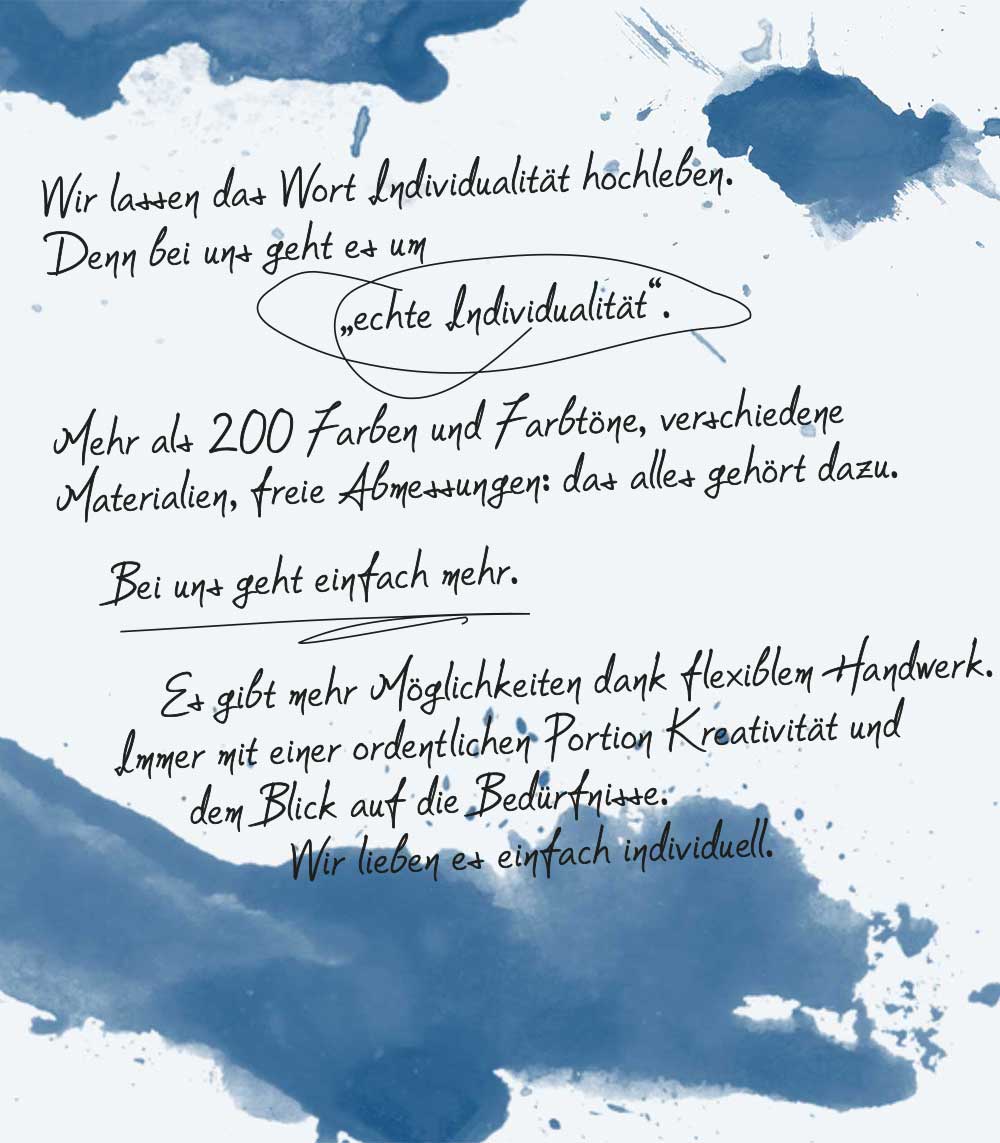 Wir lassen das Wort Individualität hochleben.
Denn bei uns geht es um
„echte Individualität“.
Mehr als 200 Farben und Farbtöne, verschiedene
Materialien, freie Abmessungen: das alles gehört dazu.
Bei uns geht einfach mehr.
Es gibt mehr Möglichkeiten dank flexiblem Handwerk.
Immer mit einer ordentlichen Portion Kreativität und
dem Blick auf die Bedürfnisse.
Wir lieben es einfach individuell.